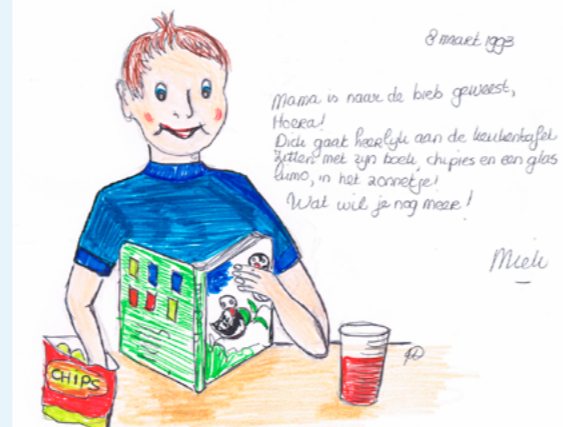 8 maart 1993
Mama is naar de bieb geweest,
Hoera!
Dick gaat heerlijk aan de keukentafel
zitten, met zijn boek, chipies en een glas
limo, in het zonnetje!
Wat wil je nog meer!
CHIPS